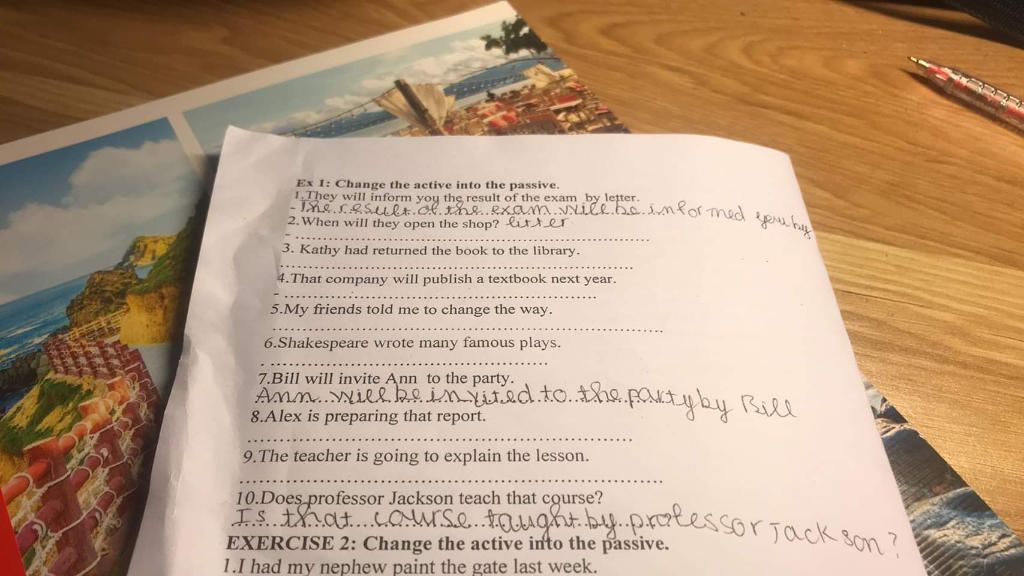 Ex 1: Change the active into the passive.
1.They will inform you the result of the exam by letter.
The result of the exam will be informed you by
2.When will they open the shop? litter
..........................................................
3. Kathy had returned the book to the library.
..........................................................
4.That company will publish a textbook next year.
- ....................................................
5.My friends told me to change the way.
..........................................................
6.Shakespeare wrote many famous plays.
............................................
7.Bill will invite Ann to the party.
Ann will be invited to the party by Bill
8.Alex is preparing that report.
..........................................................
9.The teacher is going to explain the lesson.
..........................................................
10.Does professor Jackson teach that course?
Is that course taught by professor Jackson?
EXERCISE 2: Change the active into the passive.
1.I had my nephew paint the gate last week.